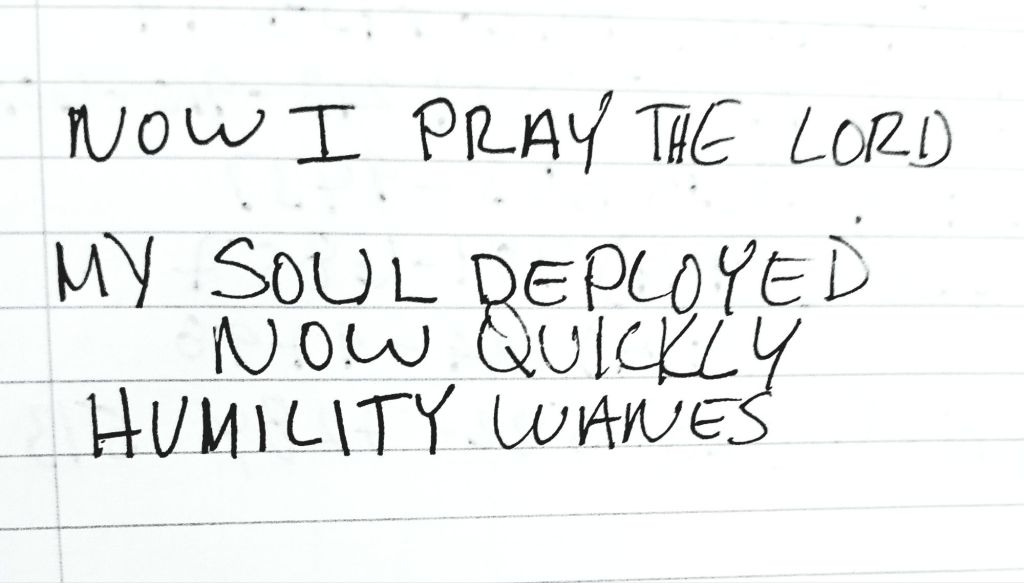 NOW I PRAY THE LORD
MY SOUL DEPLOYED
NOW QUICKLY
HUMILITY WANES